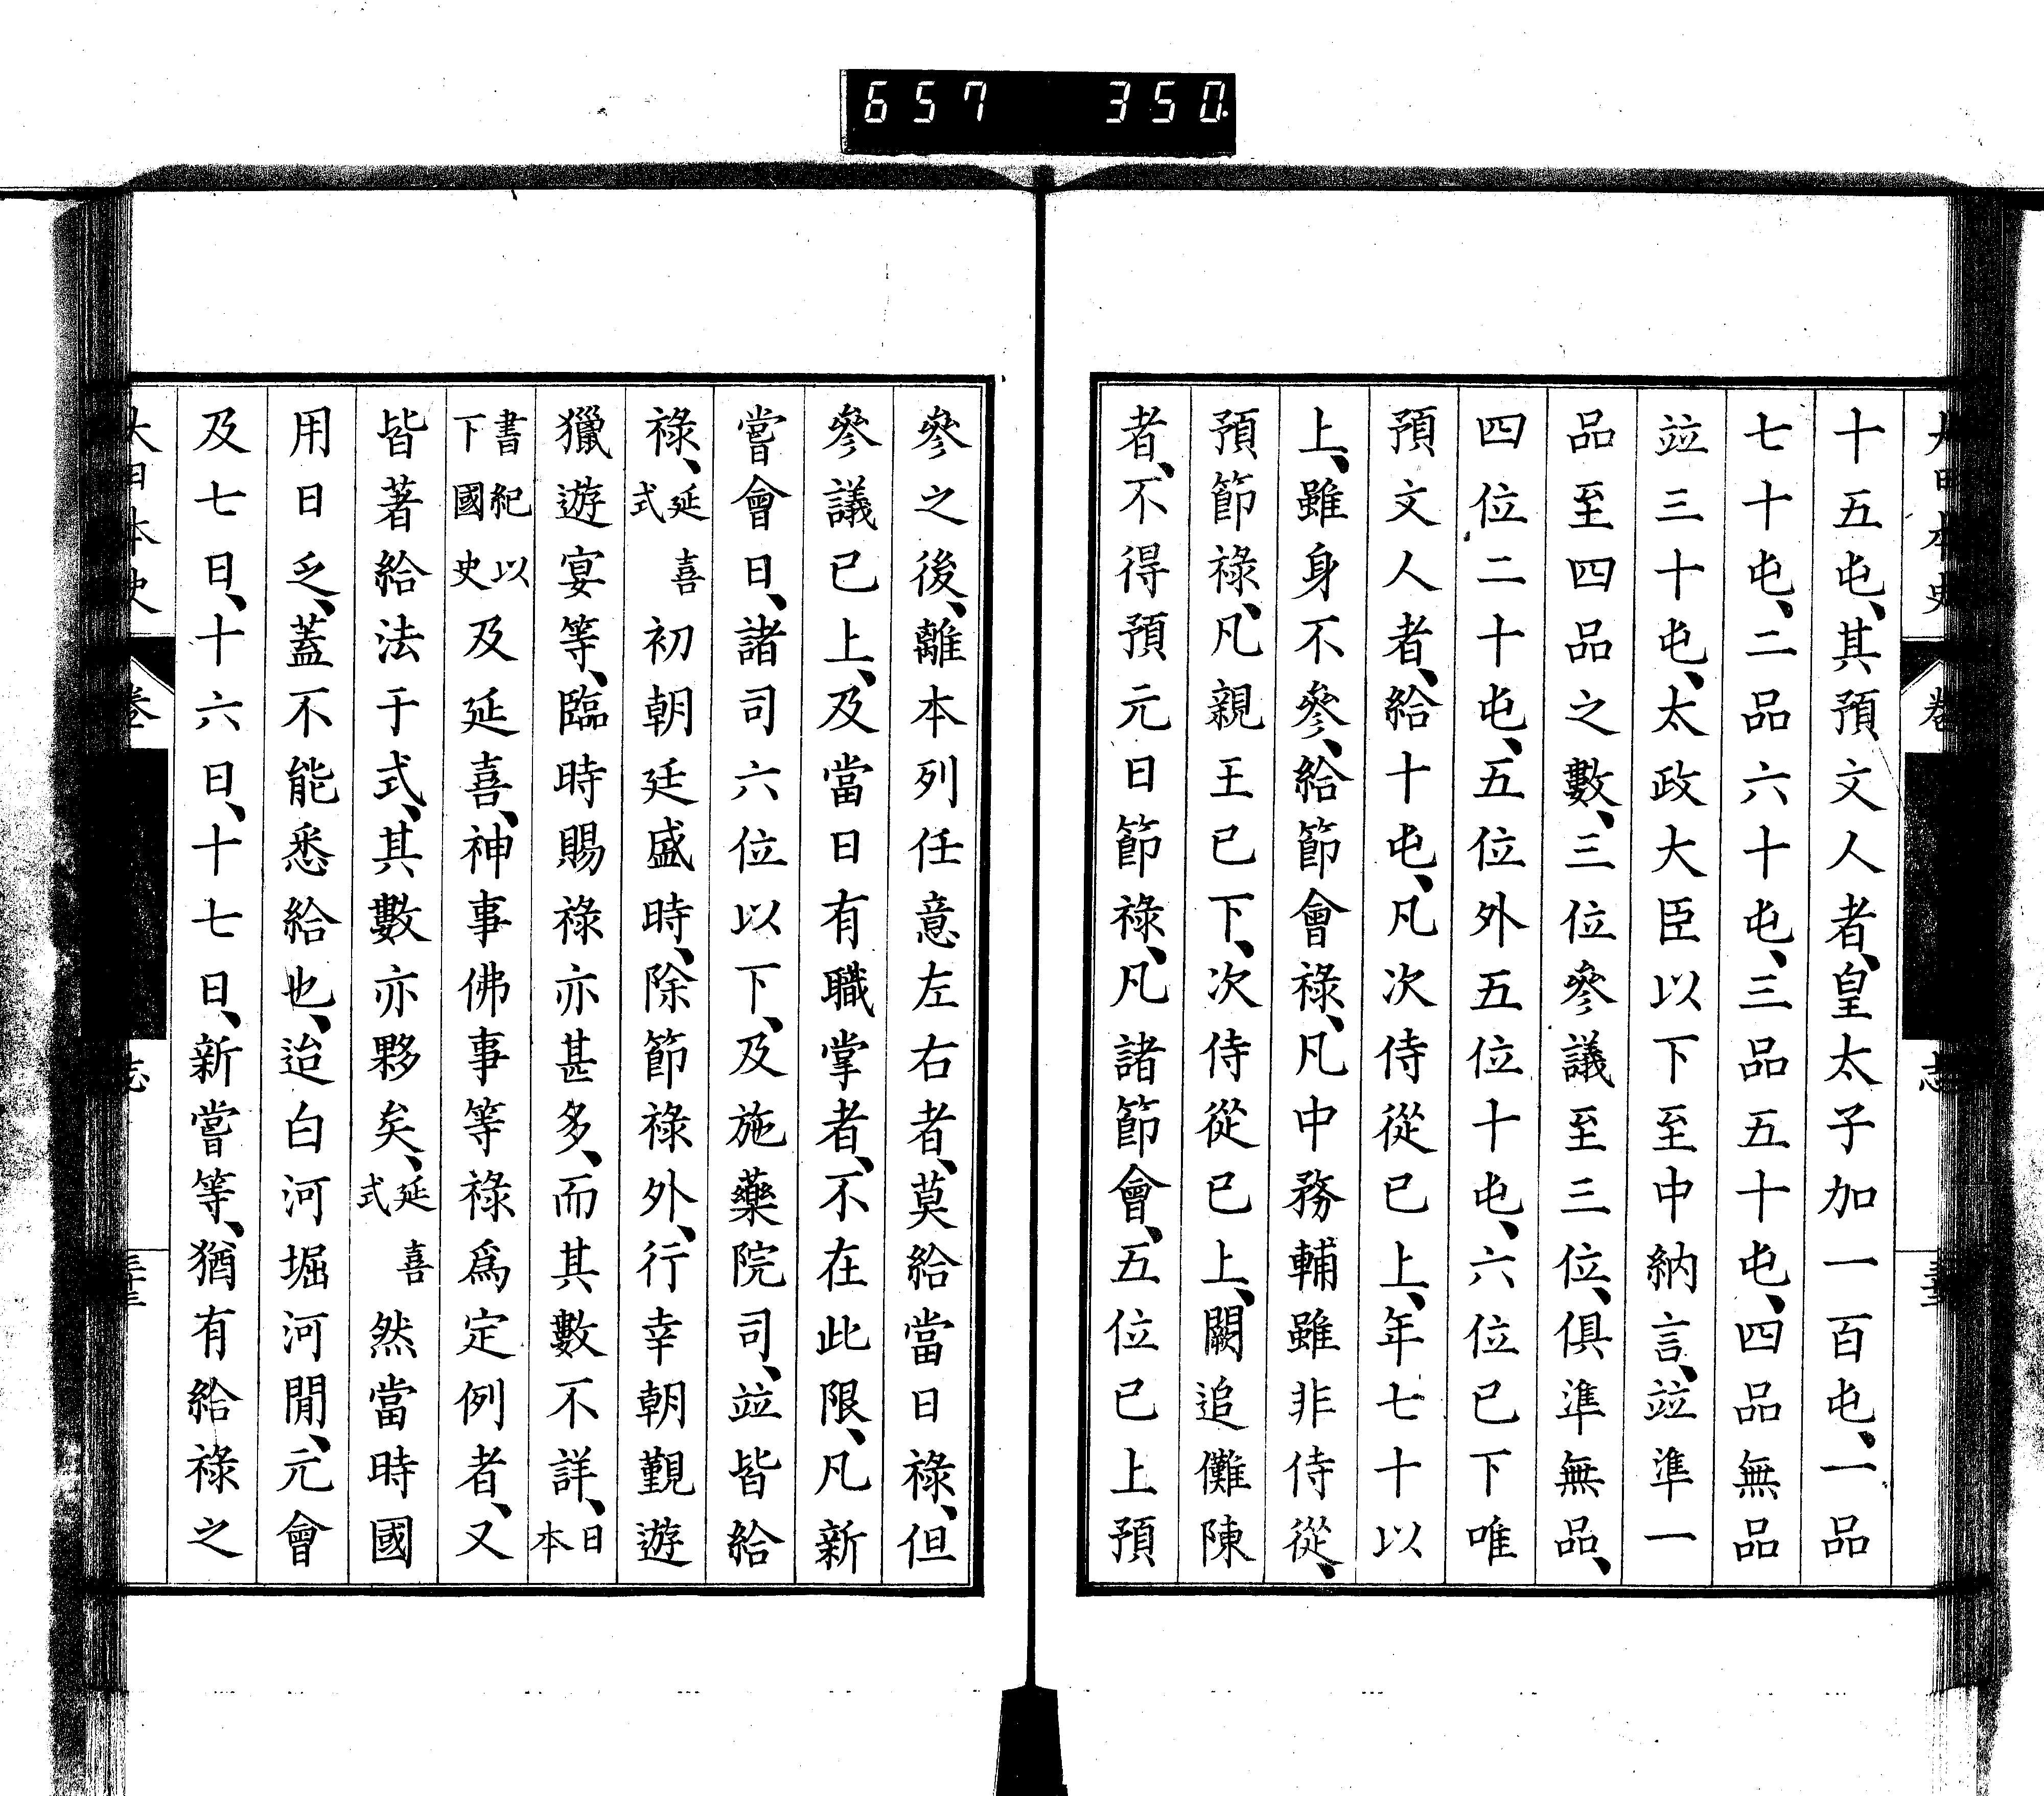 657 350
十五屯、其預文人者、皇太子加一百屯、一品
七十屯、二品六十屯、三品五十屯、四品無品
竝三十屯、太政大臣以下至中納言、竝準一
品至四品之數、三位參議至三位、俱準無品、
四位二十屯、五位外五位十屯、六位已下唯
預文人者、給十屯、凡次侍從已上、年七十以
上、雖身不參、給節會祿、凡中務輔雖非侍從、
預節祿、凡親王已下、次侍從已上、闕追儺陳
者、不得預元日節祿、凡諸節會、五位已上預
參之後、離本列任意左右者、莫給當日祿、但
參議已上、及當日有職掌者、不在此限、凡新
嘗會日、諸司六位以下、及施藥院司、竝皆給
祿、延喜式初朝廷盛時、除節祿外、行幸朝觀遊
獵遊宴等、臨時賜祿亦甚多、而其數不詳、日本
書紀以下國史及延喜、神事佛事等祿爲定例者、又
皆著給法于式、其數亦夥矣、延喜式然當時國
用日乏、蓋不能悉給也、迨白河堀河閒、元會
及七日、十六日、十七日、新嘗等、猶有給祿之
大日本史 卷 志